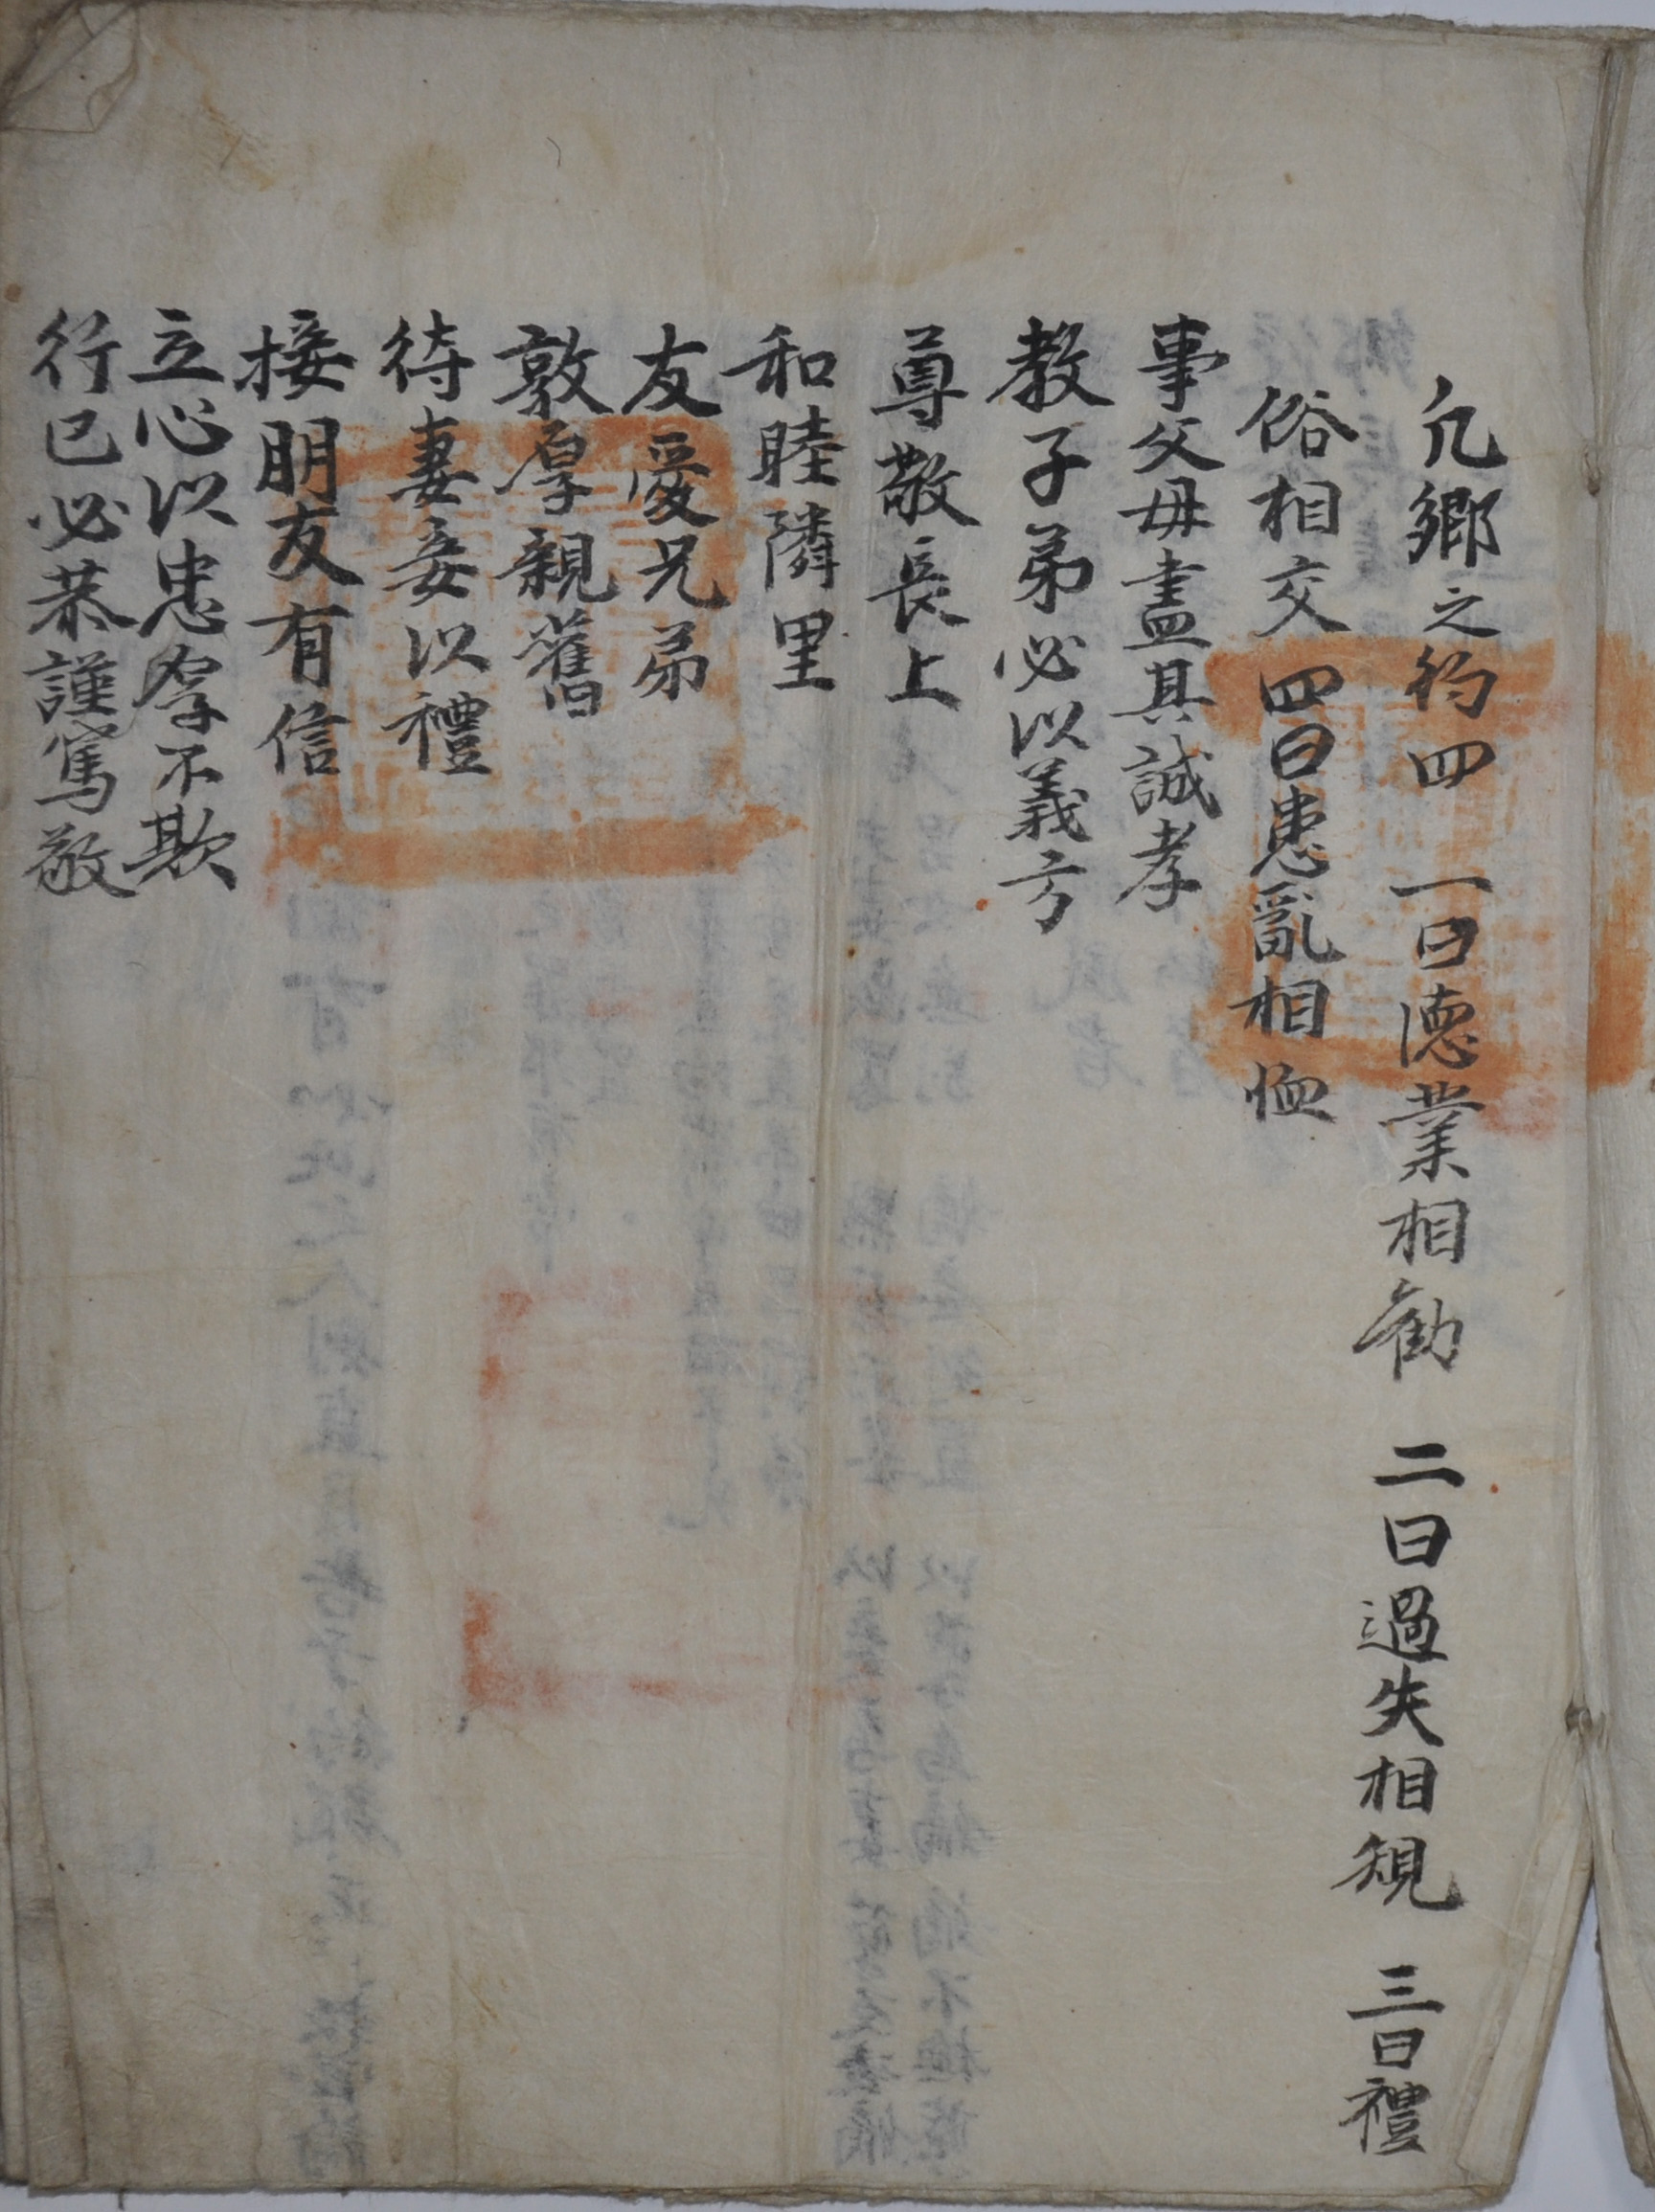 凢鄕之約四 一曰德業相勸 二曰過失相規 三曰禮
俗相交 四曰患亂相恤
事父母盡其誠孝
敎子弟必以義方
尊敬長上
和睦隣里
友愛兄弟
敦厚親舊
待妻妾以禮
接朋友有信
立心以忠孝不欺
行已必恭謹篤敬